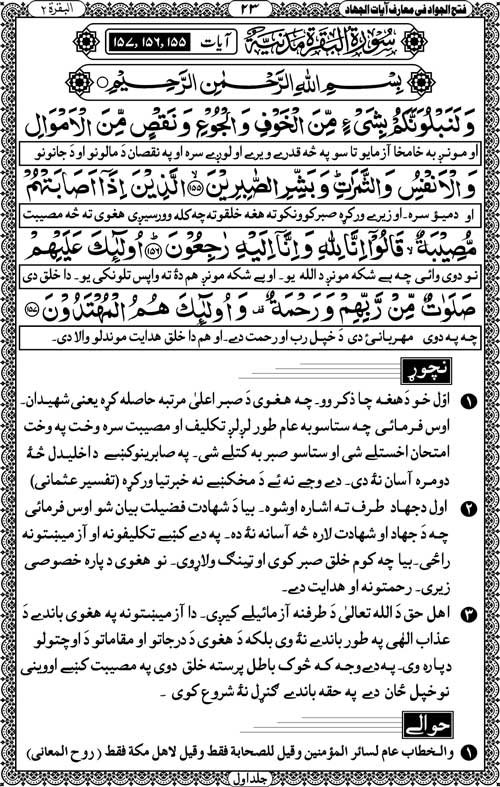 فتح الجواد فی معارف آیات الجهاد
۲۳
البقرة ۲
سُوْرَةُ الْبَقَرَةِ مَدَنِيَّةٌ
آیات ۱۵۵، ۱۵۶، ۱۵۷
بِسْمِ اللهِ الرَّحْمٰنِ الرَّحِيْمِ
وَلَنَبْلُوَنَّكُمْ بِشَيْءٍ مِّنَ الْخَوْفِ وَالْجُوْعِ وَنَقْصٍ مِّنَ الْاَمْوَالِ
او مونږ به خامخا آزمایو تاسو په څه قدرے ویرے او لوږے سره او په نقصان دَ مالونو او دَ ځانونو
وَالْاَنْفُسِ وَالثَّمَرٰتِ وَبَشِّرِ الصّٰبِرِيْنَ ﴿۱۵۵﴾ الَّذِيْنَ اِذَآ اَصَابَتْهُمْ
او دمیوؤ سره۔ او زیرے ورکړه صبر کوونکو ته هغه خلقو ته چه کله وورسیږی هغوی ته څه مصیبت
مُّصِيْبَةٌ ۙ قَالُوْٓا اِنَّا لِلّٰهِ وَاِنَّآ اِلَيْهِ رٰجِعُوْنَ ﴿۱۵۶﴾ اُولٰٓئِكَ عَلَيْهِمْ
نو دوی وائی چه بے شکه مونږ دَ الله یو۔ او بے شکه مونږ هم دهٔ ته واپس تلونکی یو۔ دا خلق دی
صَلَوٰتٌ مِّنْ رَّبِّهِمْ وَرَحْمَةٌ ۟ وَاُولٰٓئِكَ هُمُ الْمُهْتَدُوْنَ ﴿۱۵۷﴾
چه په دوی مهربانئ دی دَ خپل رب او رحمت دے۔ او هم دا خلق هدایت موندلو والا دی۔
نچوړ
۱ اوّل خو دَ هغه چا ذکر وو۔ چه هغوی دَ صبر اعلیٰ مرتبه حاصله کړه یعنی شهیدان۔
اوس فرمائی چه ستاسو به عام طور لږ لږ تکلیف او مصیبت سره وخت په وخت
امتحان اخستلے شی او ستاسو صبر به کتلے شی۔ په صابرینو کښے داخلیدل څهٔ
دومره آسان نهٔ دی۔ دے وجے نه ئے دَ مخکښے نه خبرتیا ورکړه (تفسیر عثمانی)
۲ اول دجهاد طرف ته اشاره اوشوه۔ بیا دَ شهادت فضیلت بیان شو اوس فرمائی
چه دَ جهاد او شهادت لاره څه آسانه نهٔ ده۔ په دے کښے تکلیفونه او آزمیښتونه
راځی۔ بیا چه کوم خلق صبر کوی او ټینګ ولاړوی۔ نو هغوی دپاره خصوصی
زیری۔ رحمتونه او هدایت دے۔
۳ اهل حق دَ الله تعالیٰ دَ طرفنه آزمائیلے کیږی۔ دا آزمیښتونه په هغوی باندے دَ
عذاب الٰهی په طور باندے نهٔ وی بلکه دَ هغوی دَ درجاتو او مقاماتو دَ اوچتولو
دپاره وی۔ په دے وجه که څوک باطل پرسته خلق دوی په مصیبت کښے اووینی
نو خپل ځان دے په حقه باندے ګنړل نهٔ شروع کوی۔
حوالے
۱ والخطاب عام لسائر المؤمنین وقیل للصحابة فقط وقیل لاهل مکة فقط (روح المعانی)
جلد اول